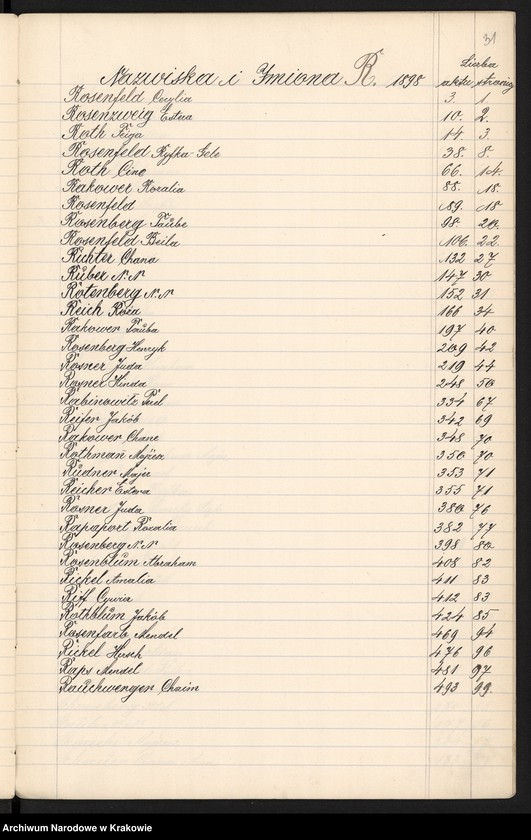 31
Liczba
Nazwiska i Imiona R. 1898 aktu strony
Rosenfeld Cecylia 3. 1.
Rosenzweig Estera 10. 2.
Roth Feiga 14 3
Rosenfeld Ryfka-Gele 38. 8.
Roth Cine 66. 14.
Rakower Rozalia 88. 18.
Rosenfeld 89. 18
Rosenberg Taube 98. 20.
Rosenfeld Beila 106. 22.
Richter Chana 132 27
Ruber N.N 147 30
Rotenberg N.N 152 31
Reich Róża 166 34
Rakower Tauba 197 40
Rosenberg Henryk 209 42
Rosner Juda 219 44
Rosner Hinda 248 50
Rabinowitz 334 67
Reifer Jakób 342 69
Rakower Chane 348 70
Rothman 350 70
Rudner Majer 353 71
Reicher Estera 355 71
Rosner Juda 380 76
Rapaport Rozalia 382 77
Rosenberg N.N 398 80
Rosenblum Abraham 408 82
Rickel Amalia 411 83
Riff Cywia 412 83
Rothblum Jakób 424 85
Rosenfarb Mendel 469 94
Rickel Hirsch 476 96
Raps Mendel 481 97
Rauchwerger Chaim 493 99.
Archiwum Narodowe w Krakowie